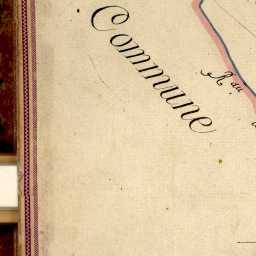 Commune
R. au